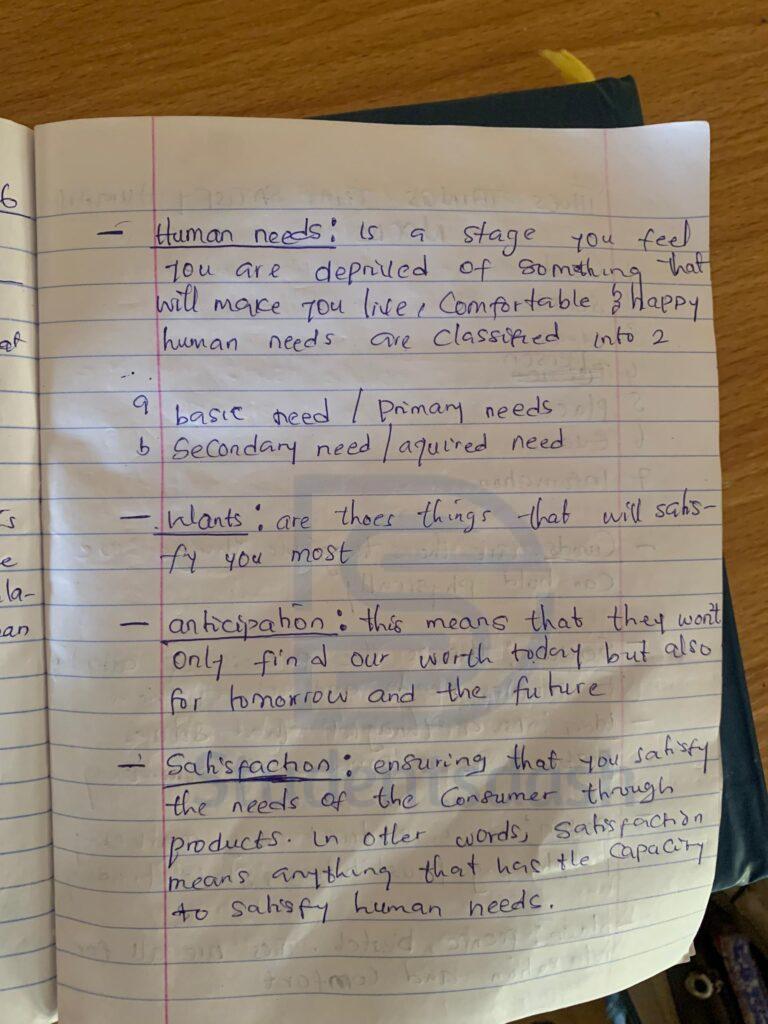 6
- Human needs: is a stage you feel
you are deprived of something that
will make you live, Comfortable & Happy
human needs are Classified into 2
a basic need / Primary needs
b Secondary need / aquired need
- Wants: are thoes things that will satis-
fy you most
la-
an
- anticipation: this means that they won't
only find our worth today but also
for tomorrow and the future
- Satisfaction: ensuring that you satisfy
the needs of the Consumer through
products. In other words, Satisfaction
means anything that has the Capacity
to satisfy human needs.